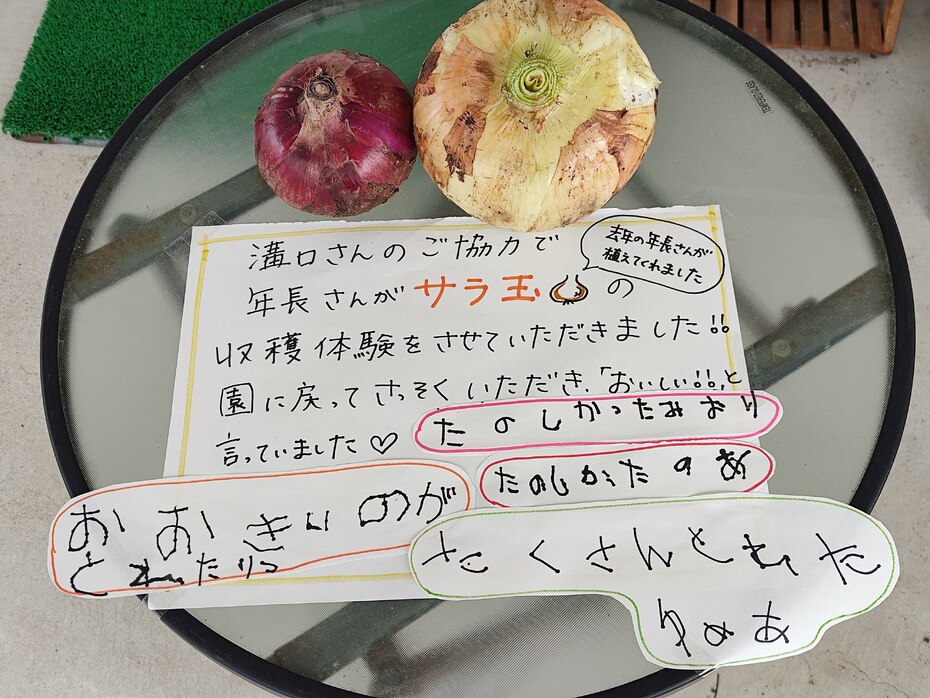 溝口さんのご協力で
年長さんがサラ玉の
収穫体験をさせていただきました!!
園に戻ってさっそくいただき、「おいしい!!」と
言っていました♡
去年の年長さんが
植えてくれました
たのしかったみおり
たのしかったのあ
おおきいのが
とれたりこ
たくさんとれた
ゆめあ
TEMPERED GLASS